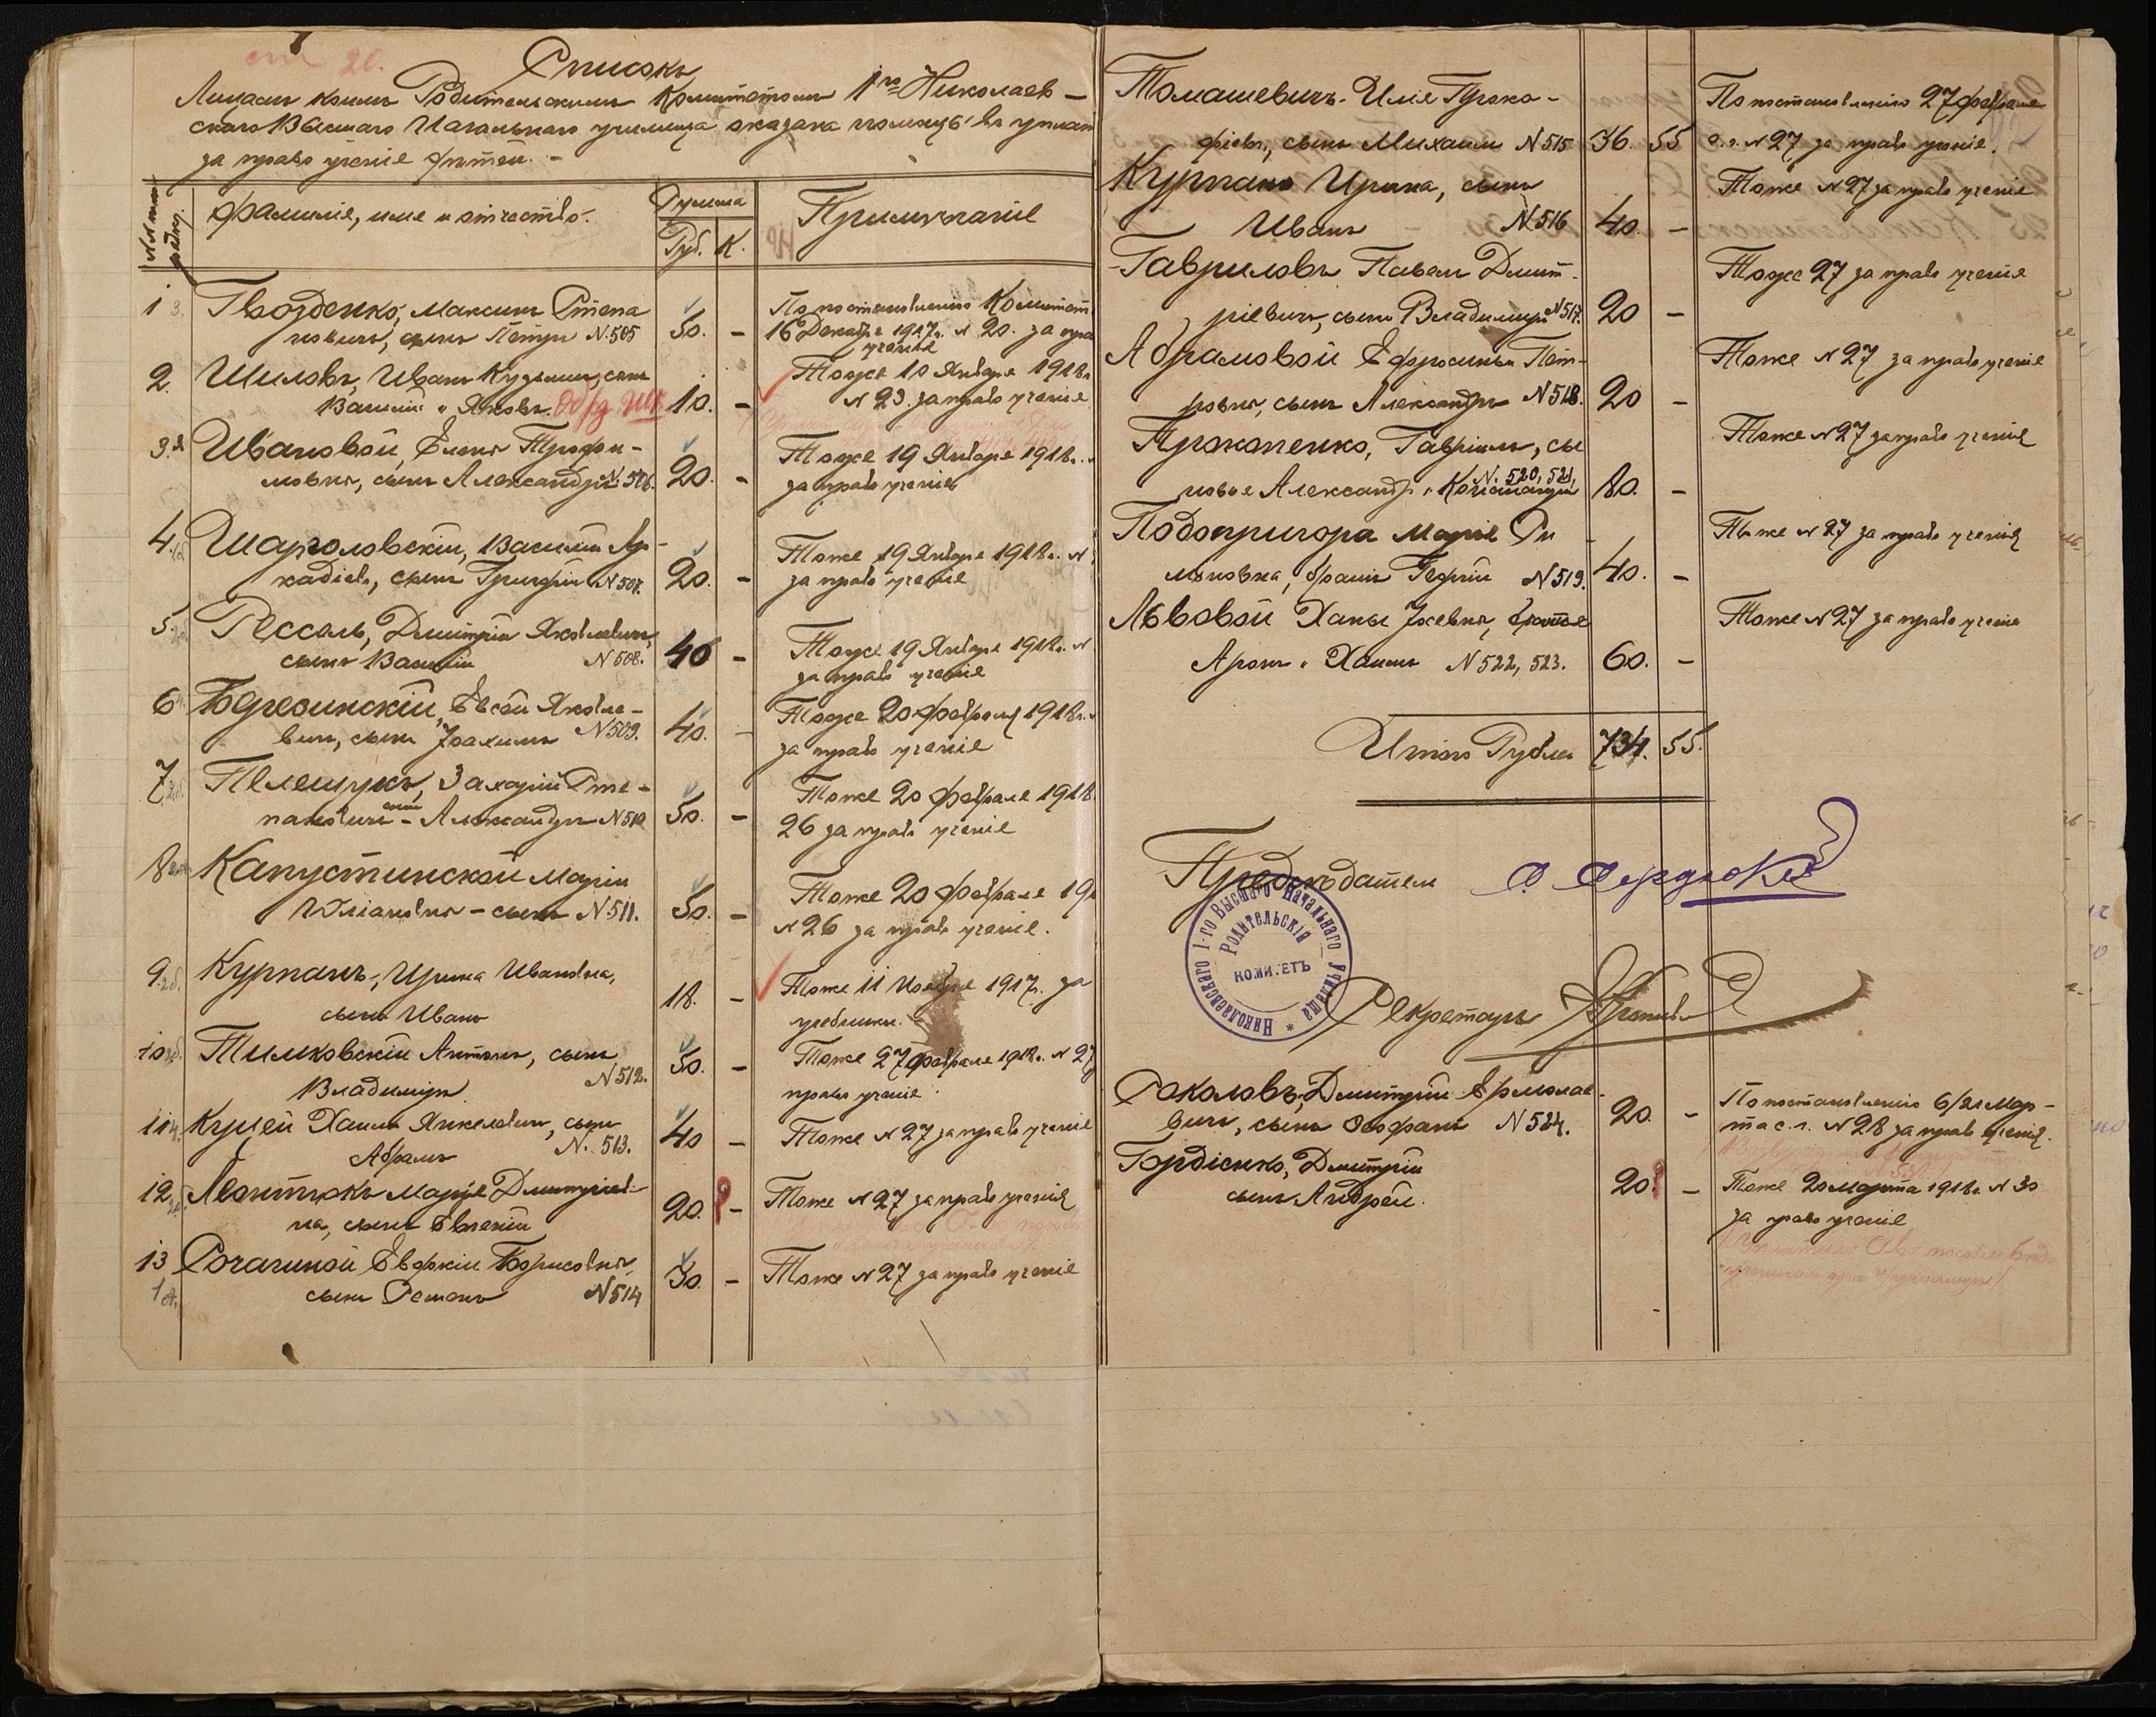 Списокъ
Лицамъ коимъ Родительскимъ Комитетомъ 1го Николаев-
скаго Высшаго Начальнаго училища оказана помощь въ уплатѣ
за право ученія дѣтей. -
Фамилія, имя и отчество.
Сумма
Руб. К.
Примѣчаніе
1 Гвозденко, Максимъ Степа
новичъ, сынъ Петръ N. 505
50. -
По постановленію Комитета
16 Декабря 1917г. N 20. за право
ученія
2. Шиловъ, Иванъ Кузьмичъ, сын.
Василій и Яковъ.
10. -
Тоже 10 Января 1918г.
N 23. за право ученія
3. Ивановой, Елена Трофи-
мовна, сынъ Александръ N. 506.
20. -
Тоже 19 Января 1918г.
за право ученія
4. Шарголовскій, Василій Ар-
кадіев., сынъ Григорій N 507.
20. -
Тоже 19 Января 1918г. N
за право ученія
5. Рессаль, Дмитрій Яковлевичъ,
сынъ Василій N 508.
40 -
Тоже 19 Января 1918г. N
за право ученія
6 Березинскій, Евсей Яковле-
вичъ, сынъ Іоахимъ N 509.
40. -
Тоже 20 февраля 1918г.
за право ученія
7. Пелешукъ, Захарій Сте-
пановичъ - сынъ Александръ N 510
50. -
Тоже 20 февраля 1918
26 за право ученія
8 Капустинской Маріи
Юліановна - сынъ N 511.
50. -
Тоже 20 февраля 191
N 26 за право ученія.
9. Курпанъ, Ирина Ивановна,
сынъ Иванъ
18. -
Тоже 11 Ноября 1917г. за
учебники.
10 Тимковскій Антонъ, сынъ
Владимиръ. N 512.
50. -
Тоже 27 февраля 1918г. N 27
право ученія
11 Кушей Хаимъ Янкелевичъ, сынъ
Абрамъ N. 513.
40 -
Тоже N 27 за право ученія
12 Леонтюкъ Марія Дмитріев-
на, сынъ Евгеній
20. ? -
Тоже N 27 за право ученія
13 Рогачиной Евдокіи Борисовна,
сынъ Семенъ N 514
30. -
Тоже N 27 за право ученія
Томашевичъ Илія Проко-
фіевъ, сынъ Михаилъ N 515
36. 55
По постановленію 27 февраля
с. г. N 27 за право ученія.
Курпанъ Ирина, сынъ
Иванъ N 516
40. -
Тоже N 27 за право ученія
Гавриловъ Павелъ Дмит-
ріевичъ, сынъ Владимиръ N 517.
20 -
Тоже 27 за право ученія
Абрамовой Ефросиньи Пет-
ровна, сынъ Александръ N 518.
20 -
Тоже N 27 за право ученія
Прокопенко, Гавріилъ, сы
новья Александр. и Константинъ N. 520, 521,
80. -
Тоже N 27 за право ученія
Подопригора Марія Си-
моновна, братъ Георгій N 519.
40. -
Тоже N 27 за право ученія
Львовой Ханы Іосевна, братья
Аронъ и Хаимъ N 522, 523.
60. -
Тоже N 27 за право ученія
Итого Рубли 734. 55.
Предсѣдатель
Николаевскаго 1-го Высшаго Начальнаго Училища *
Родительскій
Комитетъ
Секретарь
Соколовъ, Дмитрій Ермолае-
вичъ, сынъ Феофанъ N 524.
20. -
По постановленію 6/21 Мар-
та с. г. N 28 за право ученія.
Гордіенко, Дмитрій
сынъ Андрей.
20. ? -
Тоже 20 марта 1918г. N 30
за право ученія